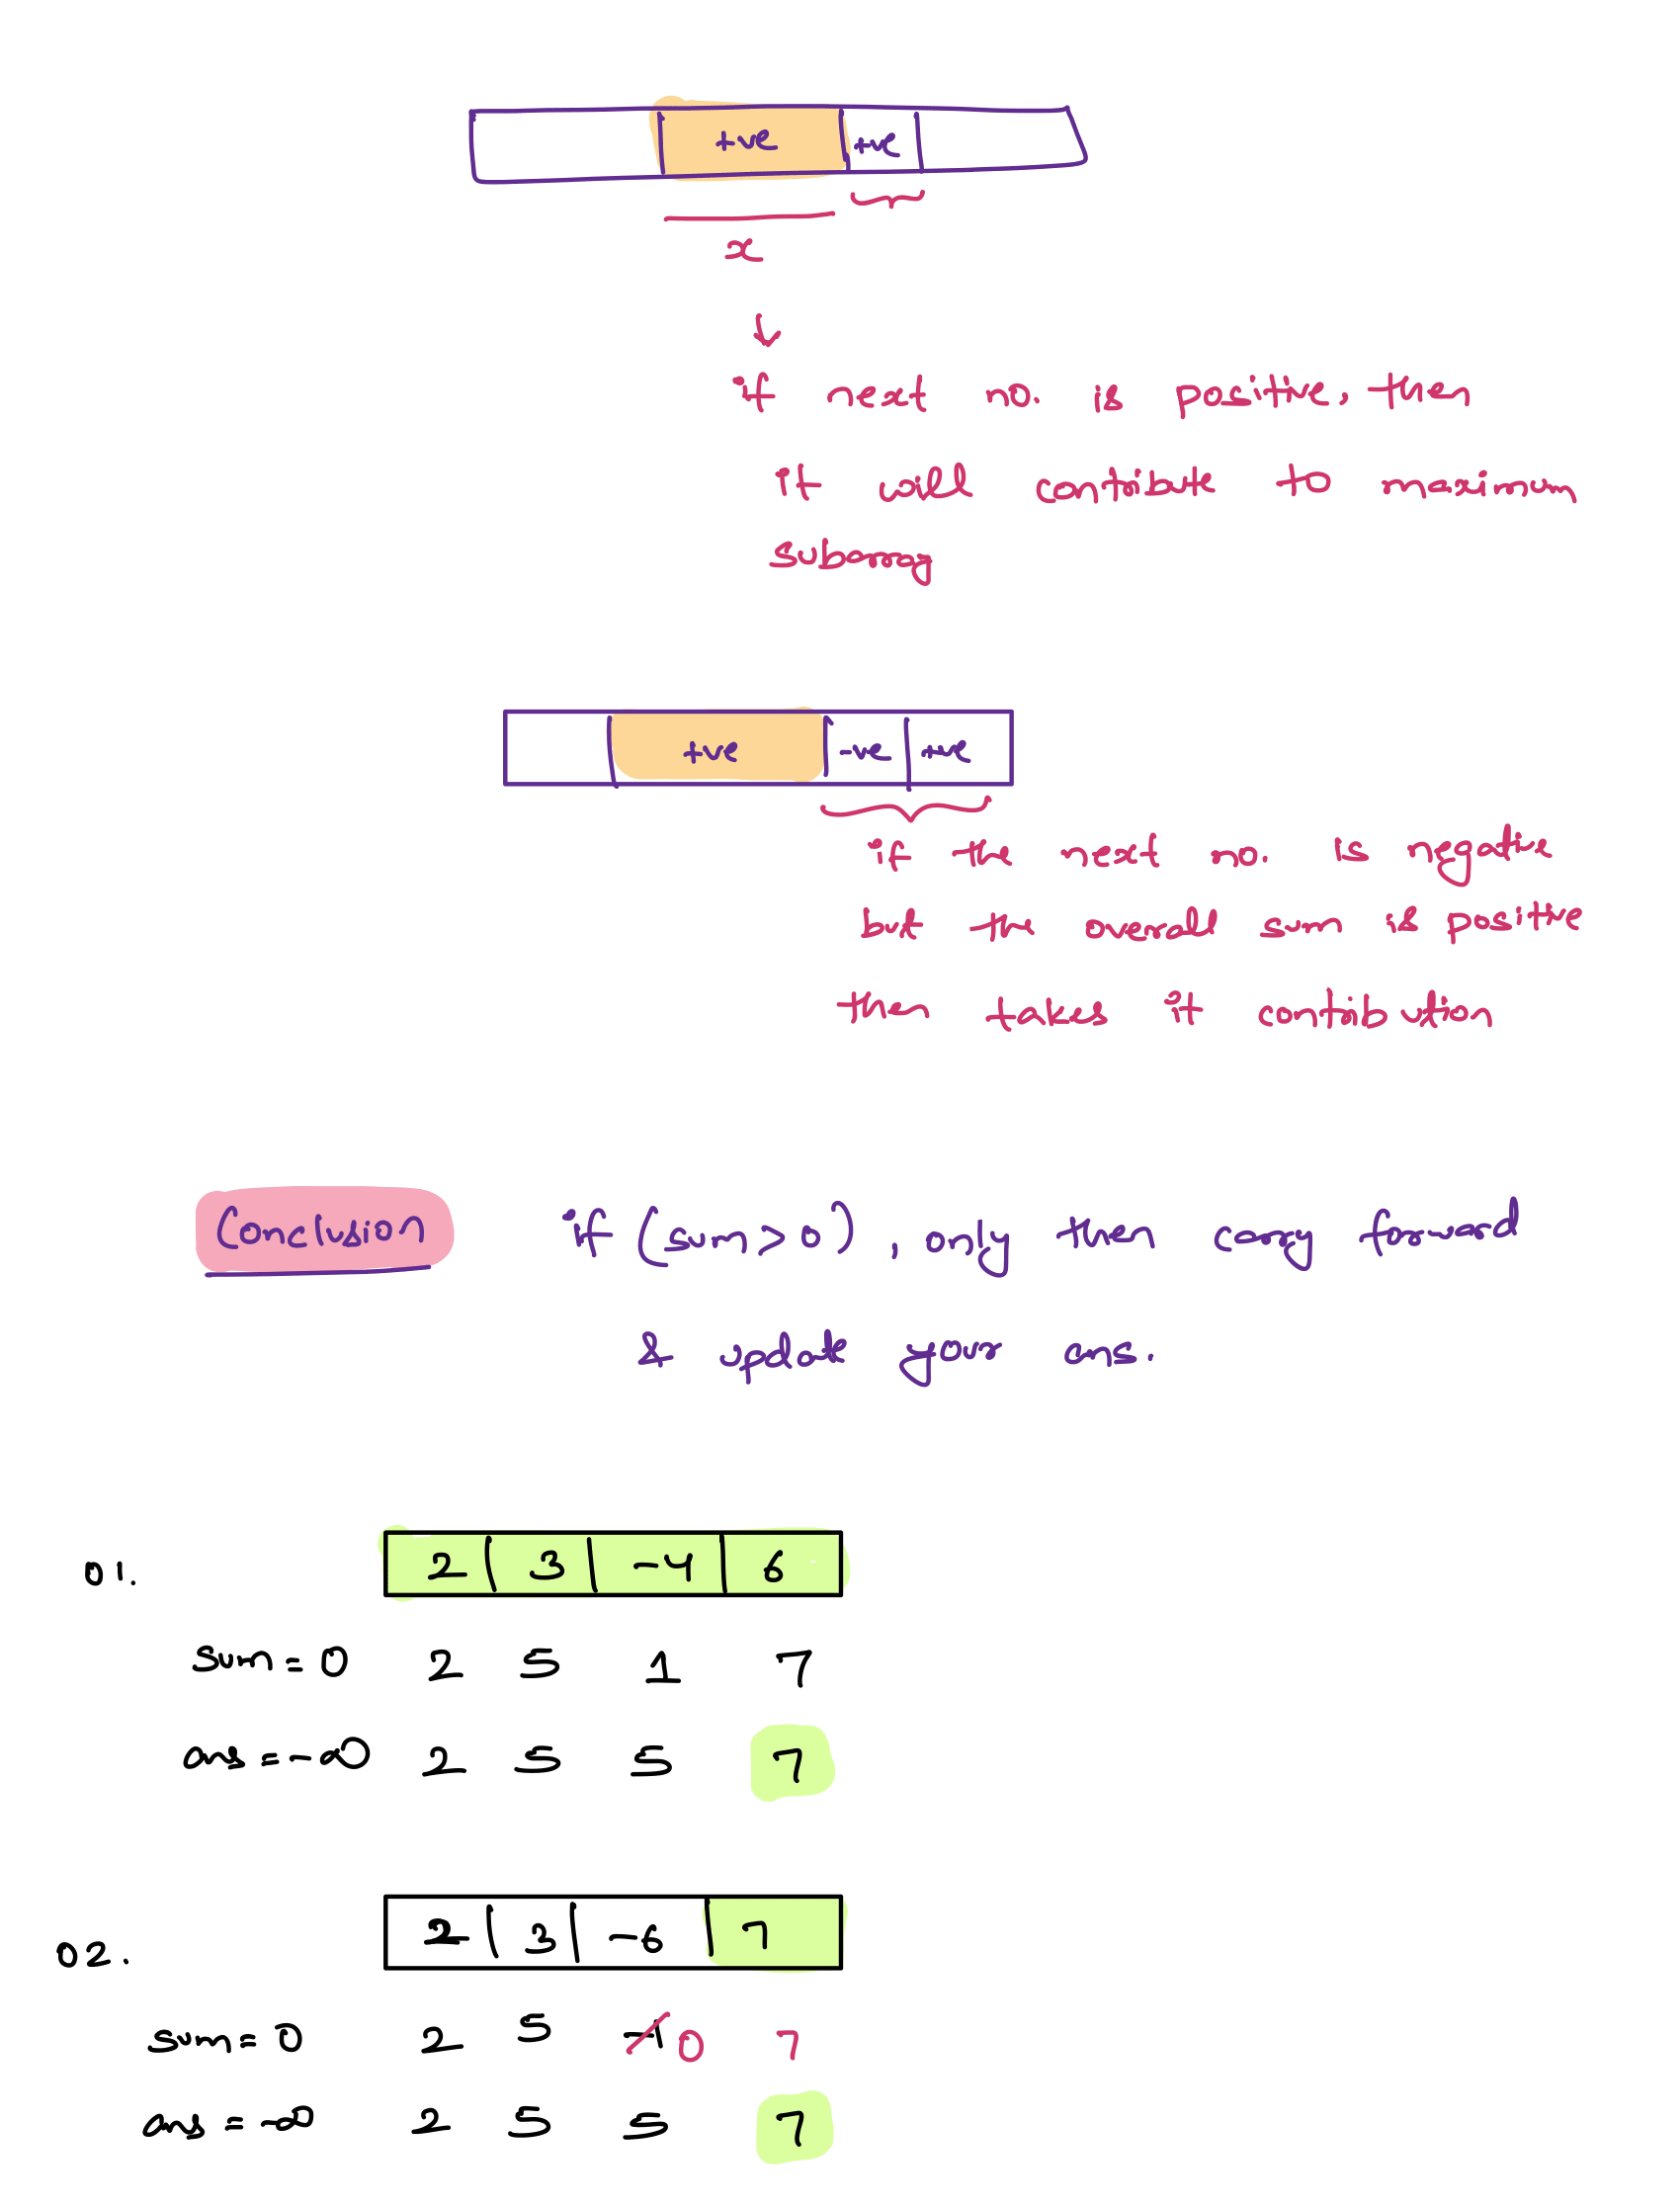 +ve +ve
x
if next no. is positive, then
it will contribute to maximum
subarray
+ve -ve +ve
if the next no. is negative
but the overall sum is positive
then takes it contribution
Conclusion if (sum>0), only then carry forward
& update your ans.
01. 2 3 -4 6
sum=0 2 5 1 7
ans=-∞ 2 5 5 7
02. 2 3 -6 7
sum=0 2 5 -1 0 7
ans=-∞ 2 5 5 7